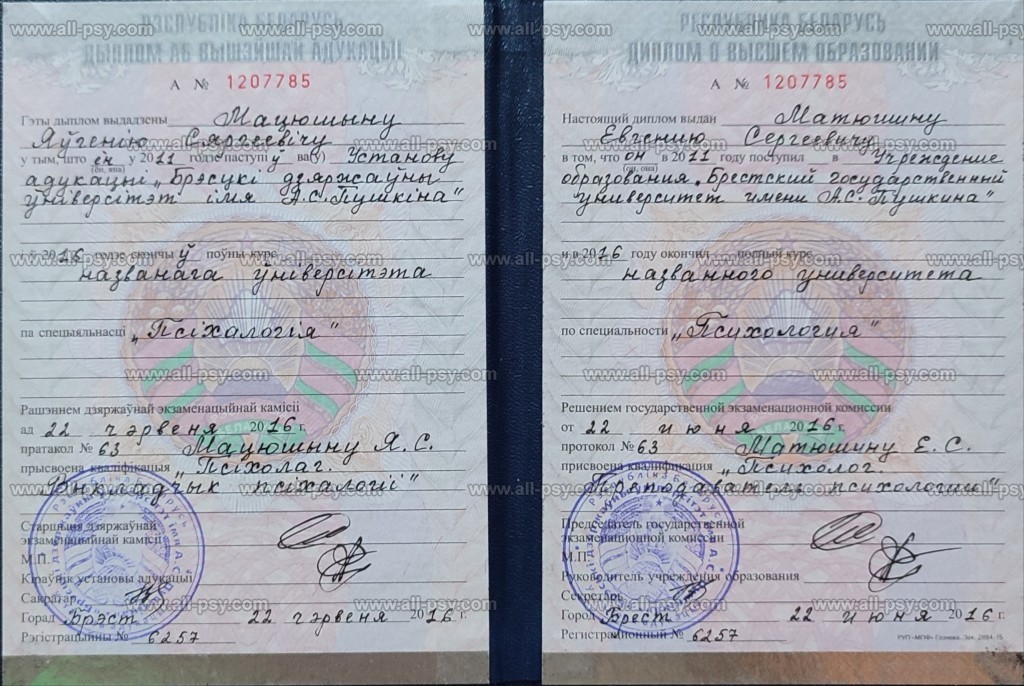 РЭСПУБЛІКА БЕЛАРУСЬ
ДЫПЛОМ АБ ВЫШЭЙШАЙ АДУКАЦЫІ
А № 1207785
Гэты дыплом выдадзены Мацюшыну
Яўгенію Сяргеевічу
у тым, што ён у 2011 годзе паступіў ва(у) Установу
(ён, яна)
адукацыі „Брэсцкі дзяржаўны
ўніверсітэт імя А.С.Пушкіна"
і ў 2016 годзе скончыў поўны курс
названага ўніверсітэта
па спецыяльнасці „Псіхалогія"
Рашэннем дзяржаўнай экзаменацыйнай камісіі
ад 22 чэрвеня 2016 г.
пратакол № 63 Мацюшыну Я. С.
прысвоена кваліфікацыя „Псіхолаг.
Выкладчык псіхалогіі"
Старшыня дзяржаўнай
экзаменацыйнай камісіі
М.П.
Кіраўнік установы адукацыі
Сакратар
Горад Брэст 22 чэрвеня 2016 г.
Рэгістрацыйны № 6257
РЕСПУБЛИКА БЕЛАРУСЬ
ДИПЛОМ О ВЫСШЕМ ОБРАЗОВАНИИ
А № 1207785
Настоящий диплом выдан Матюшину
Евгению Сергеевичу
в том, что он в 2011 году поступил в Учреждение
(он, она)
образования „Брестский государственный
университет имени А.С.Пушкина"
и в 2016 году окончил полный курс
названного университета
по специальности „Психология"
Решением государственной экзаменационной комиссии
от 22 июня 2016 г.
протокол № 63 Матюшину Е. С.
присвоена квалификация „Психолог.
Преподаватель психологии"
Председатель государственной
экзаменационной комиссии
М.П.
Руководитель учреждения образования
Секретарь
Город Брест 22 июня 2016 г.
Регистрационный № 6257
www.all-psy.com